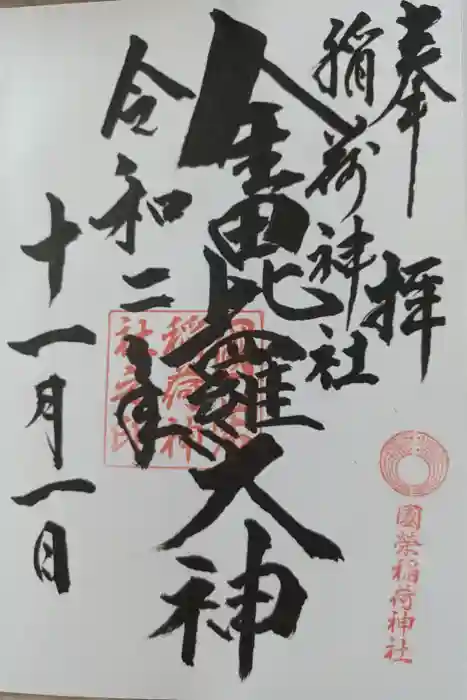 奉拝
稲荷神社
金毘羅大神
令和二年
十一月一日
國榮稲荷神社